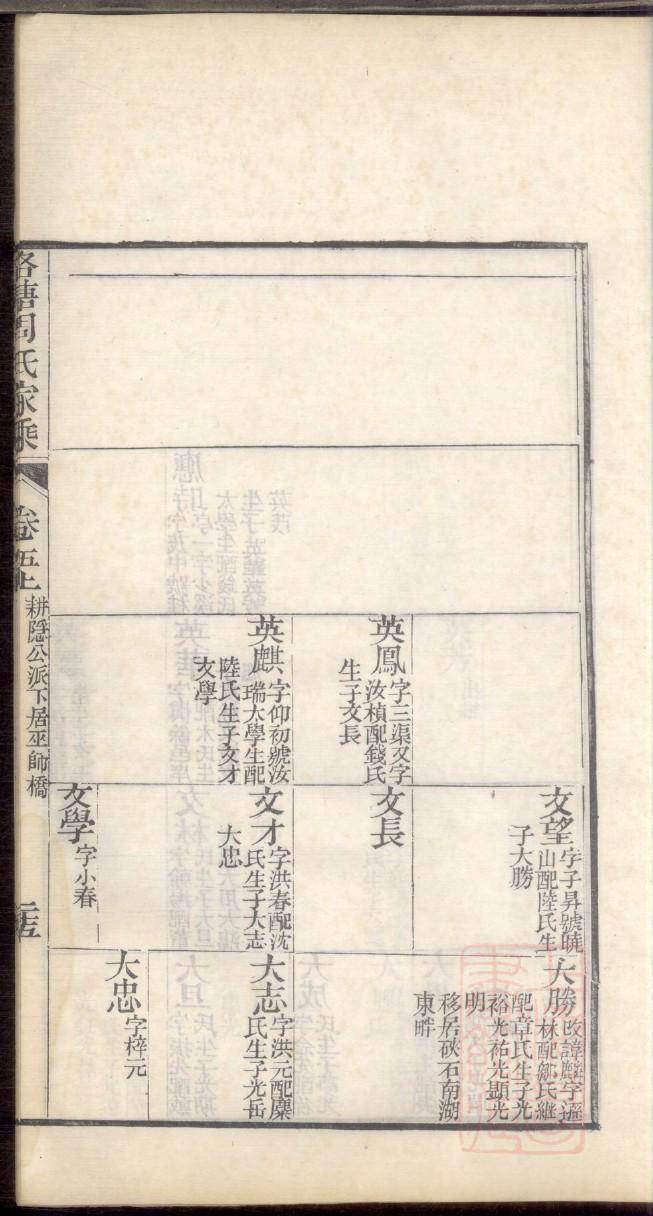 英鳳
字三渠又字
汝楨配錢氏
生子文長
英麒
字仰初號汝
瑞太學生配
陸氏生子文才
文學
文望
字子昇號曉
山配陸氏生
子大勝
文長
文才
字洪春配沈
氏生子大志
大忠
文學
字小春
大勝
改諱麟字
林配鄒氏繼
配章氏生子光
裕光祐光顯光
明
移居硤石南湖
東畔
大志
字洪元配麋
氏生子光岳
大忠
字梓元
洛塘周氏家乘
卷五上
耕隱公派下居巫師橋